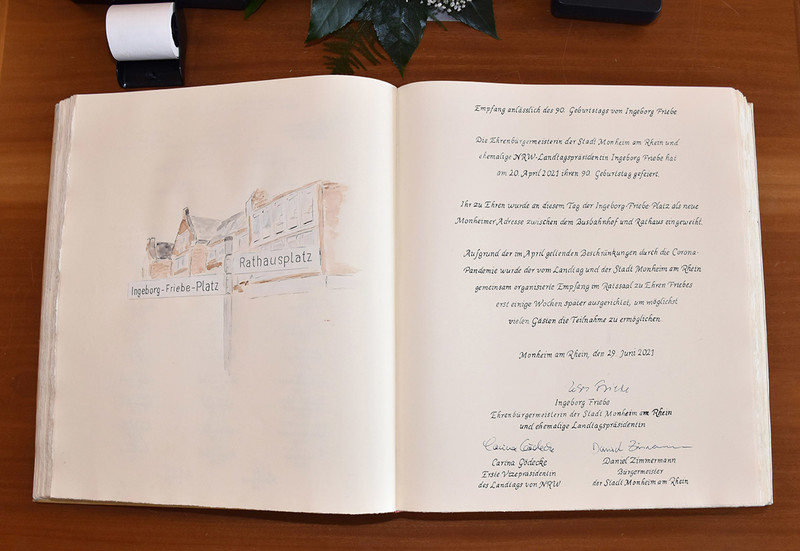 Ingeborg-Friebe-Platz
Rathausplatz
Empfang anlässlich des 90. Geburtstags von Ingeborg Friebe
Die Ehrenbürgermeisterin der Stadt Monheim am Rhein und
ehemalige NRW-Landtagspräsidentin Ingeborg Friebe hat
am 20. April 2021 ihren 90. Geburtstag gefeiert.
Ihr zu Ehren wurde an diesem Tag der Ingeborg-Friebe-Platz als neue
Monheimer Adresse zwischen dem Busbahnhof und Rathaus eingeweiht.
Aufgrund der im April geltenden Beschränkungen durch die Corona-
Pandemie wurde der vom Landtag und der Stadt Monheim am Rhein
gemeinsam organisierte Empfang im Ratssaal zu Ehren Friebes
erst einige Wochen später ausgerichtet, um möglichst
vielen Gästen die Teilnahme zu ermöglichen.
Monheim am Rhein, den 29. Juni 2021
Ingeborg Friebe
Ehrenbürgermeisterin der Stadt Monheim am Rhein
und ehemalige Landtagspräsidentin
Carina Gödecke
Carina Gödecke
Erste Vizepräsidentin
des Landtags von NRW
Daniel Zimmermann
Daniel Zimmermann
Bürgermeister
der Stadt Monheim am Rhein